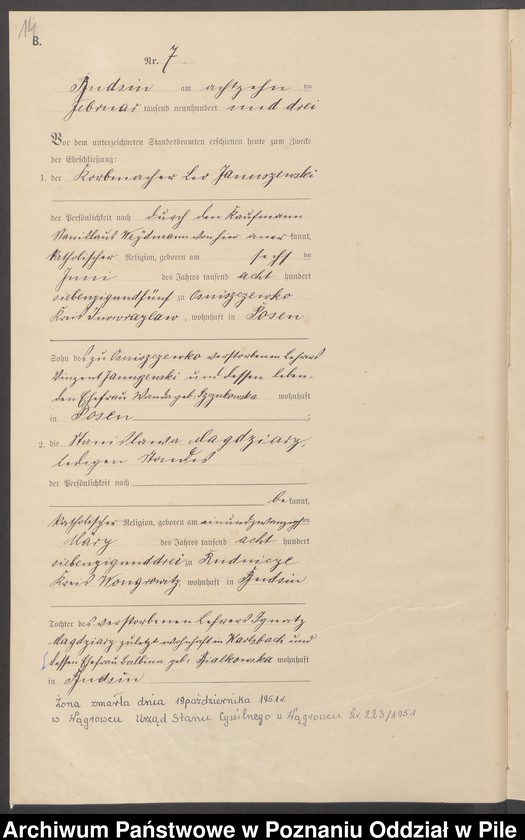 14
B.
Nr. 7
Budsin am achtzehn ten
Februar tausend neunhundert und drei
Vor dem unterzeichneten Standesbeamten erschienen heute zum Zwecke
der Eheschließung:
1. der Korbmacher Leo Januszewski
der Persönlichkeit nach durch den Kaufmann
Stanislaus Weydmann von hier aner kannt,
katholischer Religion, geboren am sechs ten
Juni des Jahres tausend acht hundert
siebenzigundfünf zu Osniszczewko
Kreis Inowrazlaw, wohnhaft in Posen
Sohn des zu Osniszczewko verstorbenen Lehrers
Vinzent Januszewski und dessen leben-
den Ehefrau Wanda geb. wohnhaft
in Posen
2. die Stanislawa Magdziarz,
ledigen Standes
der Persönlichkeit nach
be kannt,
katholischer Religion, geboren am einundzwanzigsten
März des Jahres tausend acht hundert
siebenzigunddrei zu Rudnicze
Kreis Wongrowitz wohnhaft in Budsin
Tochter des verstorbenen Lehrers Ignatz
Magdziarz zuletzt wohnhaft in Karlsbach und
dessen Ehefrau Balbina geb. Bialkowska wohnhaft
in Budsin
Żona zmarła dnia 19 października 1951 r.
w Wągrowcu Urząd Stanu Cywilnego w Wągrowcu Nr. 223/1951
Archiwum Państwowe w Poznaniu Oddział w Pile